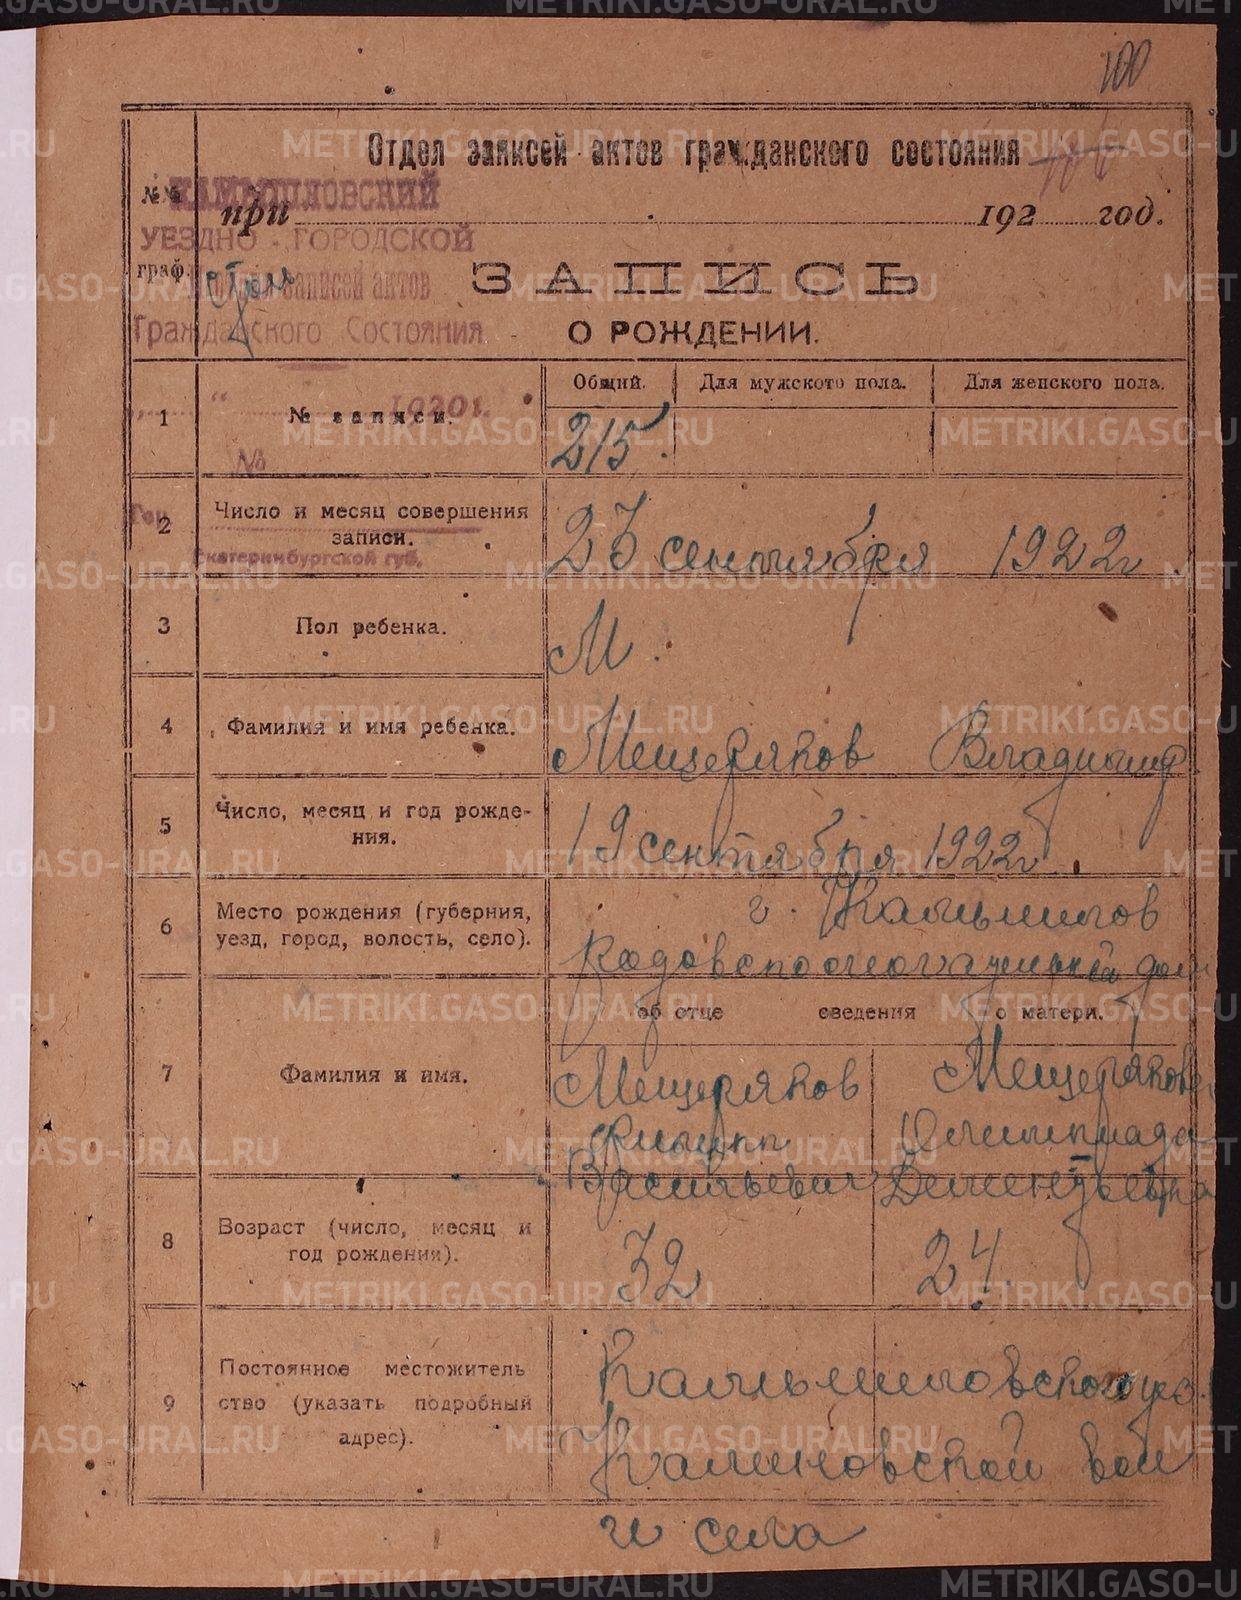 100
Отдел записей актов гражданского состояния
№№ граф.
при 192 год.
КАМЫШЛОВСКИЙ
УЕЗДНО-ГОРОДСКОЙ
отдел записей актов
Гражданского Состояния
ЗАПИСЬ
О РОЖДЕНИИ.
Общий. Для мужского пола. Для женского пола.
1 № записи. 215.
" " 1920 г.
№
2 Число и месяц совершения записи. 23 сентября 1922 г.
Екатеринбургской губ.
3 Пол ребенка. М.
4 Фамилия и имя ребенка. Мещеряков Владимир
5 Число, месяц и год рожде-
ния. 19 сентября 1922 г.
6 Место рождения (губерния, г. Камышлов
уезд, город, волость, село). дом
об отце сведения о матери.
7 Фамилия и имя. Мещеряков Мещерякова
Филипп Олимпиада
Васильевич Дементьевна
8 Возраст (число, месяц и
год рождения). 32 24.
9 Постоянное местожитель Камышловского уез.
ство (указать подробный Калиновской вол
адрес).
и села
METRIKI.GASO-URAL.RU